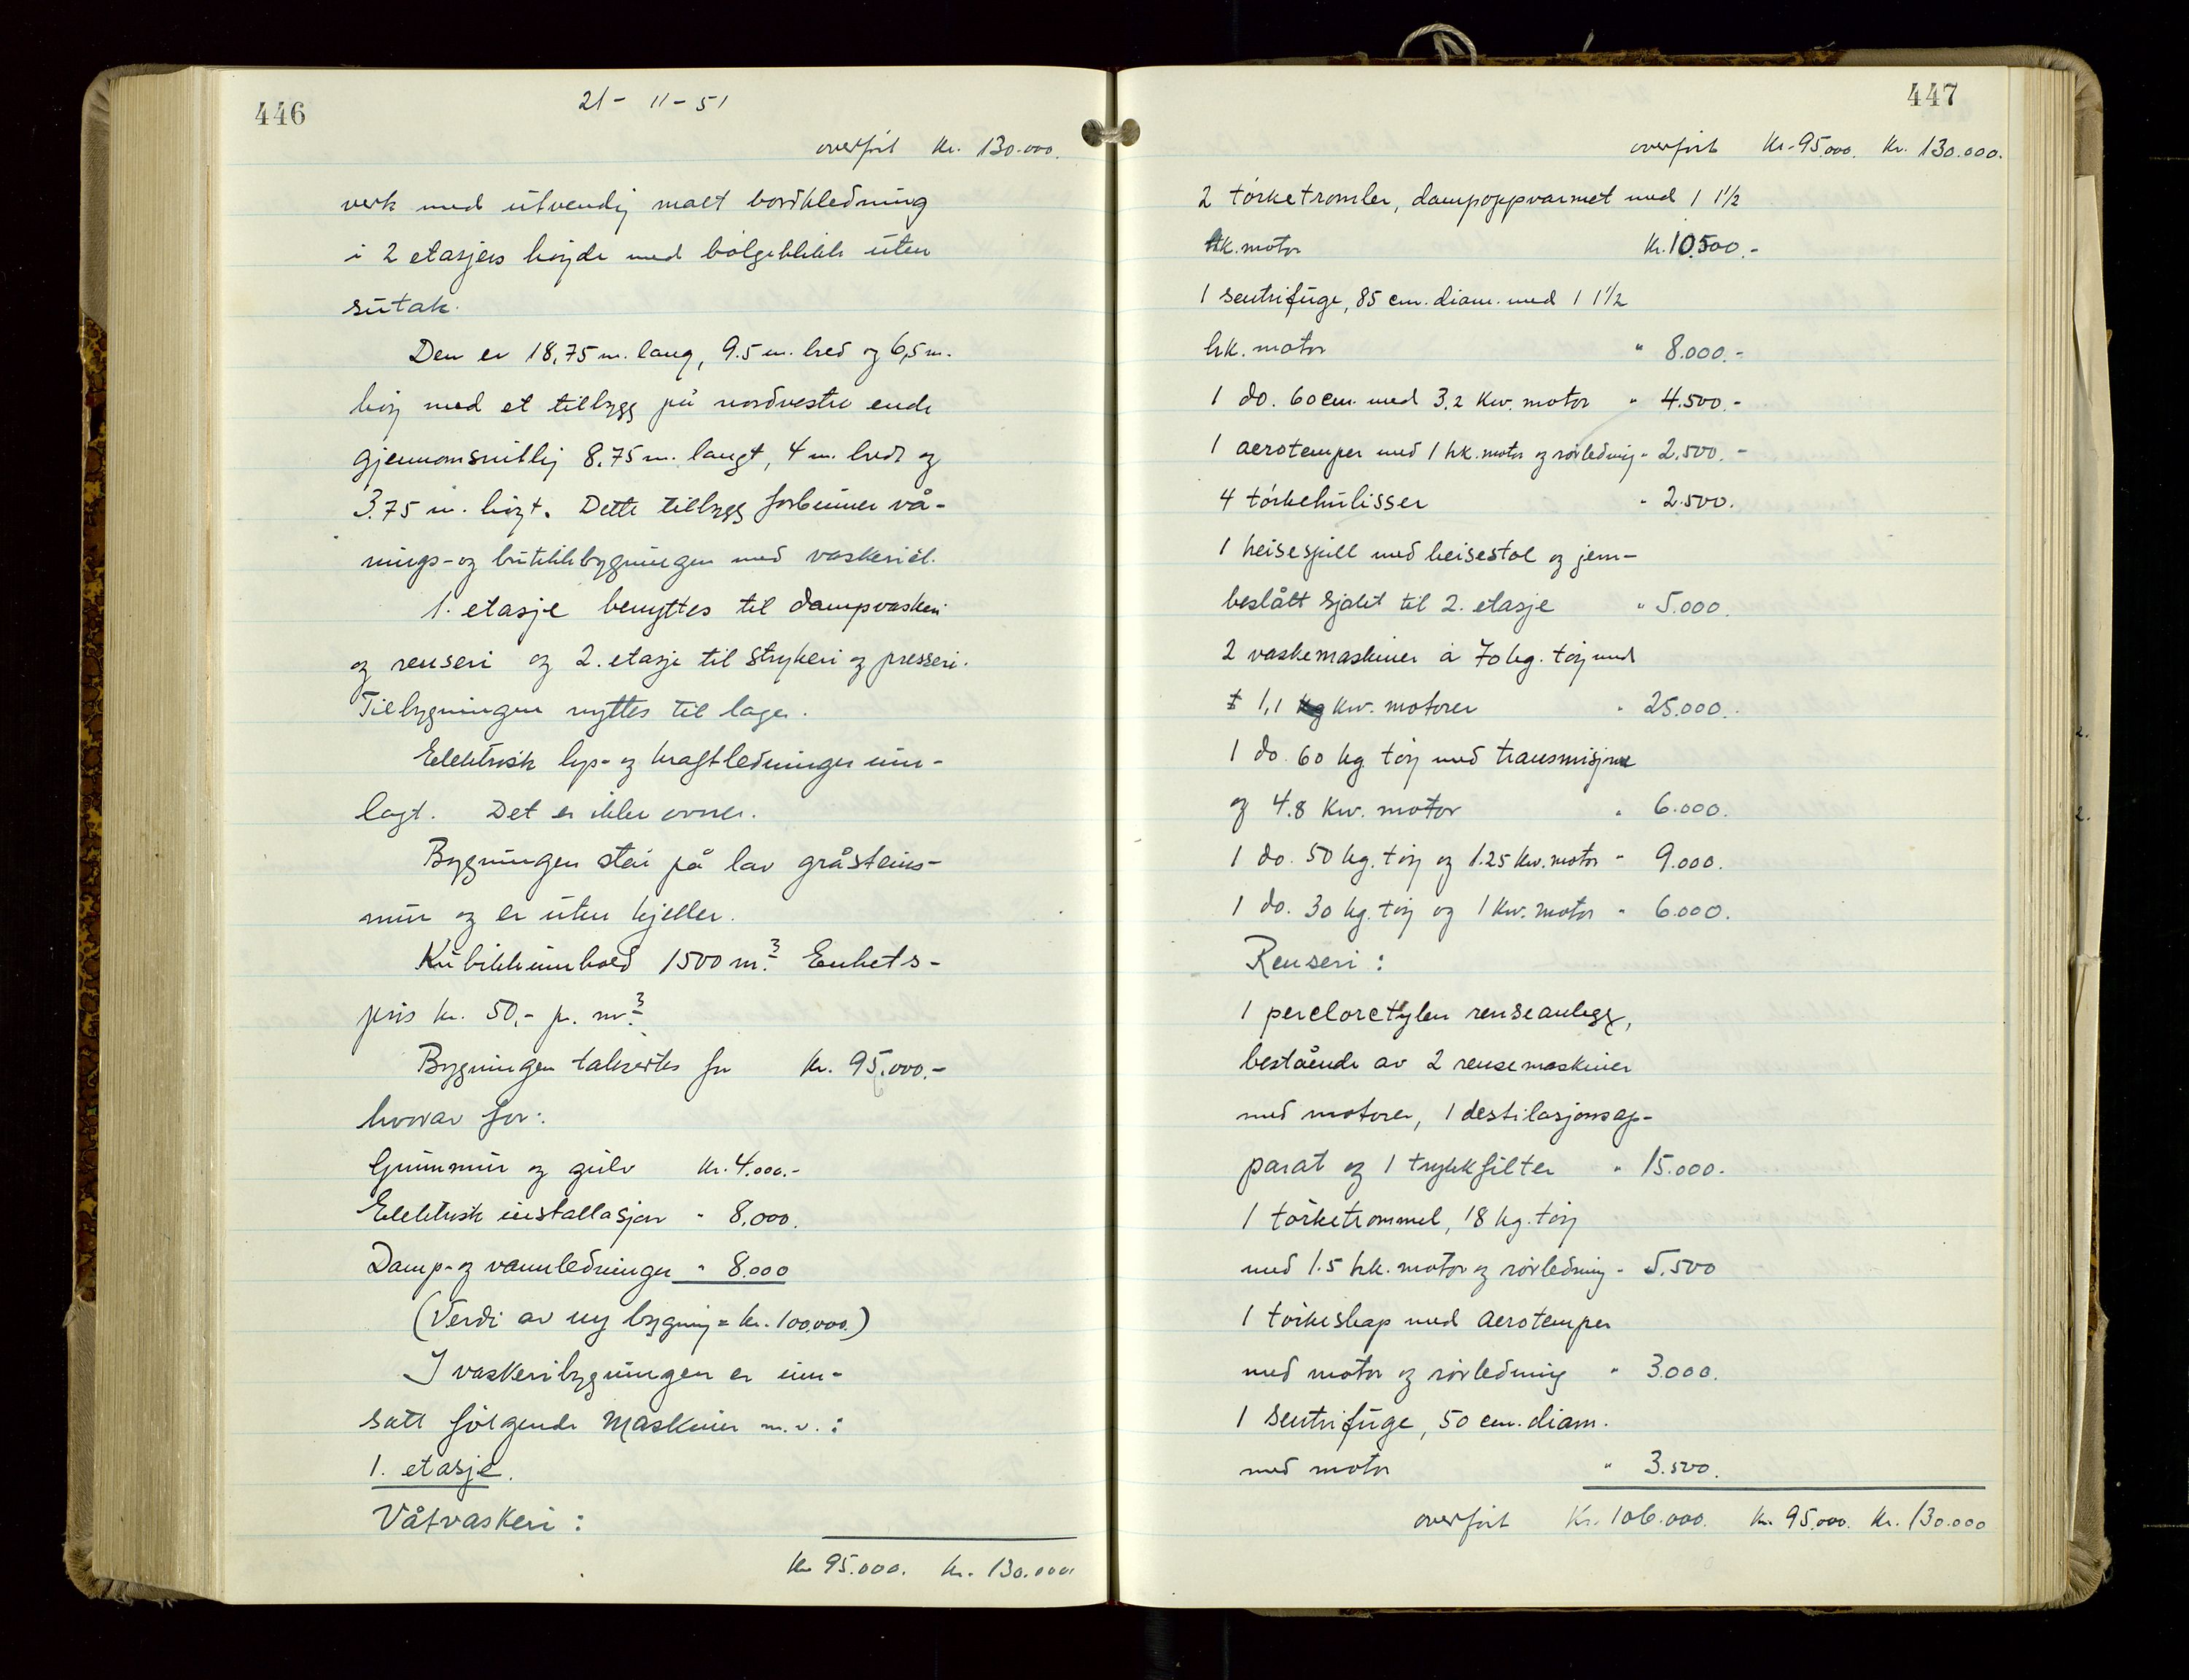 446
21 - 11 - 51
overført Kr. 130.000.
verk med utvendig malt bordkledning
i 2 etasjers høyde med bølgeblikk uten
sutak.
Den er 18,75 m. lang, 9.5 m. bred og 6,5 m.
høy med et tilbygg på nordvestre ende
gjennomsnitlig 8,75 m. langt, 4 m. bredt og
3.75 m. høyt. Dette tilbygg forbinner vå-
nings- og butikkbygningen med vaskeriet.
1. etasje benyttes til dampvaskeri
og renseri og 2. etasje til strykeri og presseri.
Tilbygningen nyttes til lager.
Elektrisk lys- og kraftledninger inn-
lagt. Det er ikke ovner.
Bygningen står på lav gråsteins-
mur og er uten kjeller.
Kubikkinnhold 1500 m.³ Enhets-
pris kr. 50,- pr. m.³
Bygningen takseres for Kr. 95.000.-
hvorav for:
Grunnmur og gulv Kr. 4.000.-
Elektrisk installasjon " 8.000.
Damp- og vannledninger " 8.000
(Verdi av ny bygning = kr. 100.000.)
I vaskeribygningen er inn-
satt følgende maskiner m.v.:
1. etasje.
Våtvaskeri:
Kr 95.000. Kr. 130.000.
447
overført Kr. 95.000. Kr. 130.000.
2 tørketromler, dampoppvarmet med 1 1½
hk. motor Kr. 10.500.-
1 sentrifuge, 85 cm. diam. med 1 1½
hk. motor " 8.000.-
1 do. 60 cm. med 3.2 Kw. motor " 4.500.-
1 aerotemper med 1 hk. motor og rørledning " 2.500.-
4 tørkekulisser " 2.500.
1 heisespill med heisestol og jern-
beslått sjakt til 2. etasje " 5.000.
2 vaskemaskiner á 70 kg. tøy med
1,1 Kw. motorer " 25.000.
1 do. 60 kg tøy med transmisjone
og 4.8 Kw. motor " 6.000.
1 do. 50 kg. tøy og 1.25 Kw. motor " 9.000.
1 do. 30 kg. tøy og 1 Kw. motor " 6.000.
Renseri:
1 percloretylen renseanlegg,
bestående av 2 rensemaskiner
med motorer, 1 destilasjonsap-
parat og 1 trykkfilter " 15.000.
1 tørketrommel, 18 kg. tøy
med 1.5 hk. motor og rørledning " 5.500
1 tørkeskap med aerotemper
med motor og rørledning " 3.000.
1 sentrifuge, 50 cm. diam.
med motor " 3.500.
overført Kr. 106.000. Kr. 95.000. Kr. 130.000